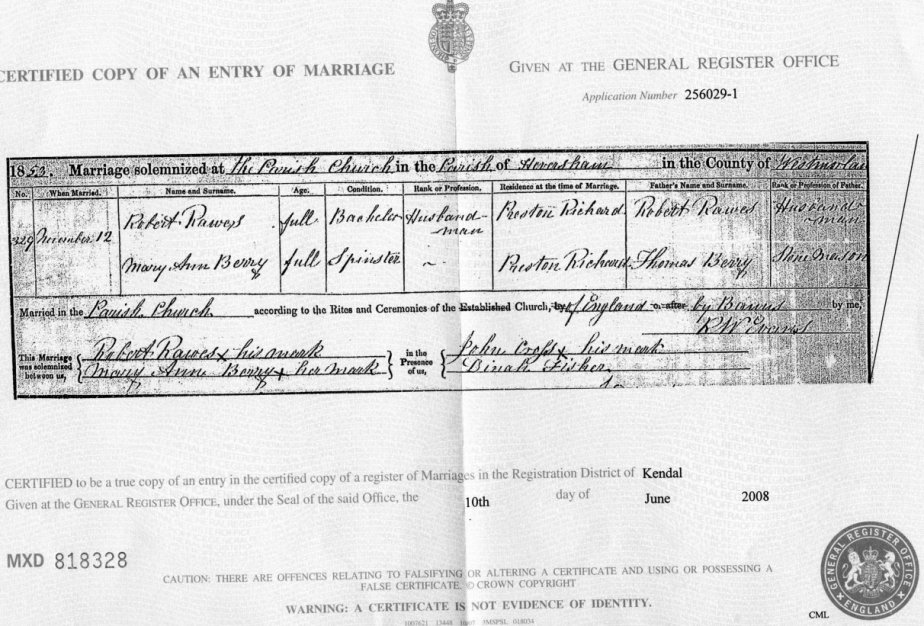 CERTIFIED COPY OF AN ENTRY OF MARRIAGE
GIVEN AT THE GENERAL REGISTER OFFICE
Application Number 256029-1
1853. Marriage solemnized at the Parish Church in the Parish of Heversham in the County of Westmorlan
No. When Married. Name and Surname. Age. Condition. Rank or Profession. Residence at the time of Marriage. Father's Name and Surname. Rank or Profession of Father.
329 November 12 Robert Rawes full Bachelor Husband-man Preston Richard Robert Rawes Husband-man
Mary Ann Berry full Spinster ~ Preston Richard Thomas Berry Stone Mason
Married in the Parish Church according to the Rites and Ceremonies of the Established Church, of England or after by Banns by me,
R W Evans
This Marriage was solemnized between us, Robert Rawes x his mark in the Presence of us, John Cross x his mark
Mary Ann Berry x her mark Dinah Fisher
CERTIFIED to be a true copy of an entry in the certified copy of a register of Marriages in the Registration District of Kendal
Given at the GENERAL REGISTER OFFICE, under the Seal of the said Office, the 10th day of June 2008
MXD 818328
CAUTION: THERE ARE OFFENCES RELATING TO FALSIFYING OR ALTERING A CERTIFICATE AND USING OR POSSESSING A
FALSE CERTIFICATE. © CROWN COPYRIGHT
WARNING: A CERTIFICATE IS NOT EVIDENCE OF IDENTITY.
GENERAL REGISTER OFFICE
ENGLAND
CML